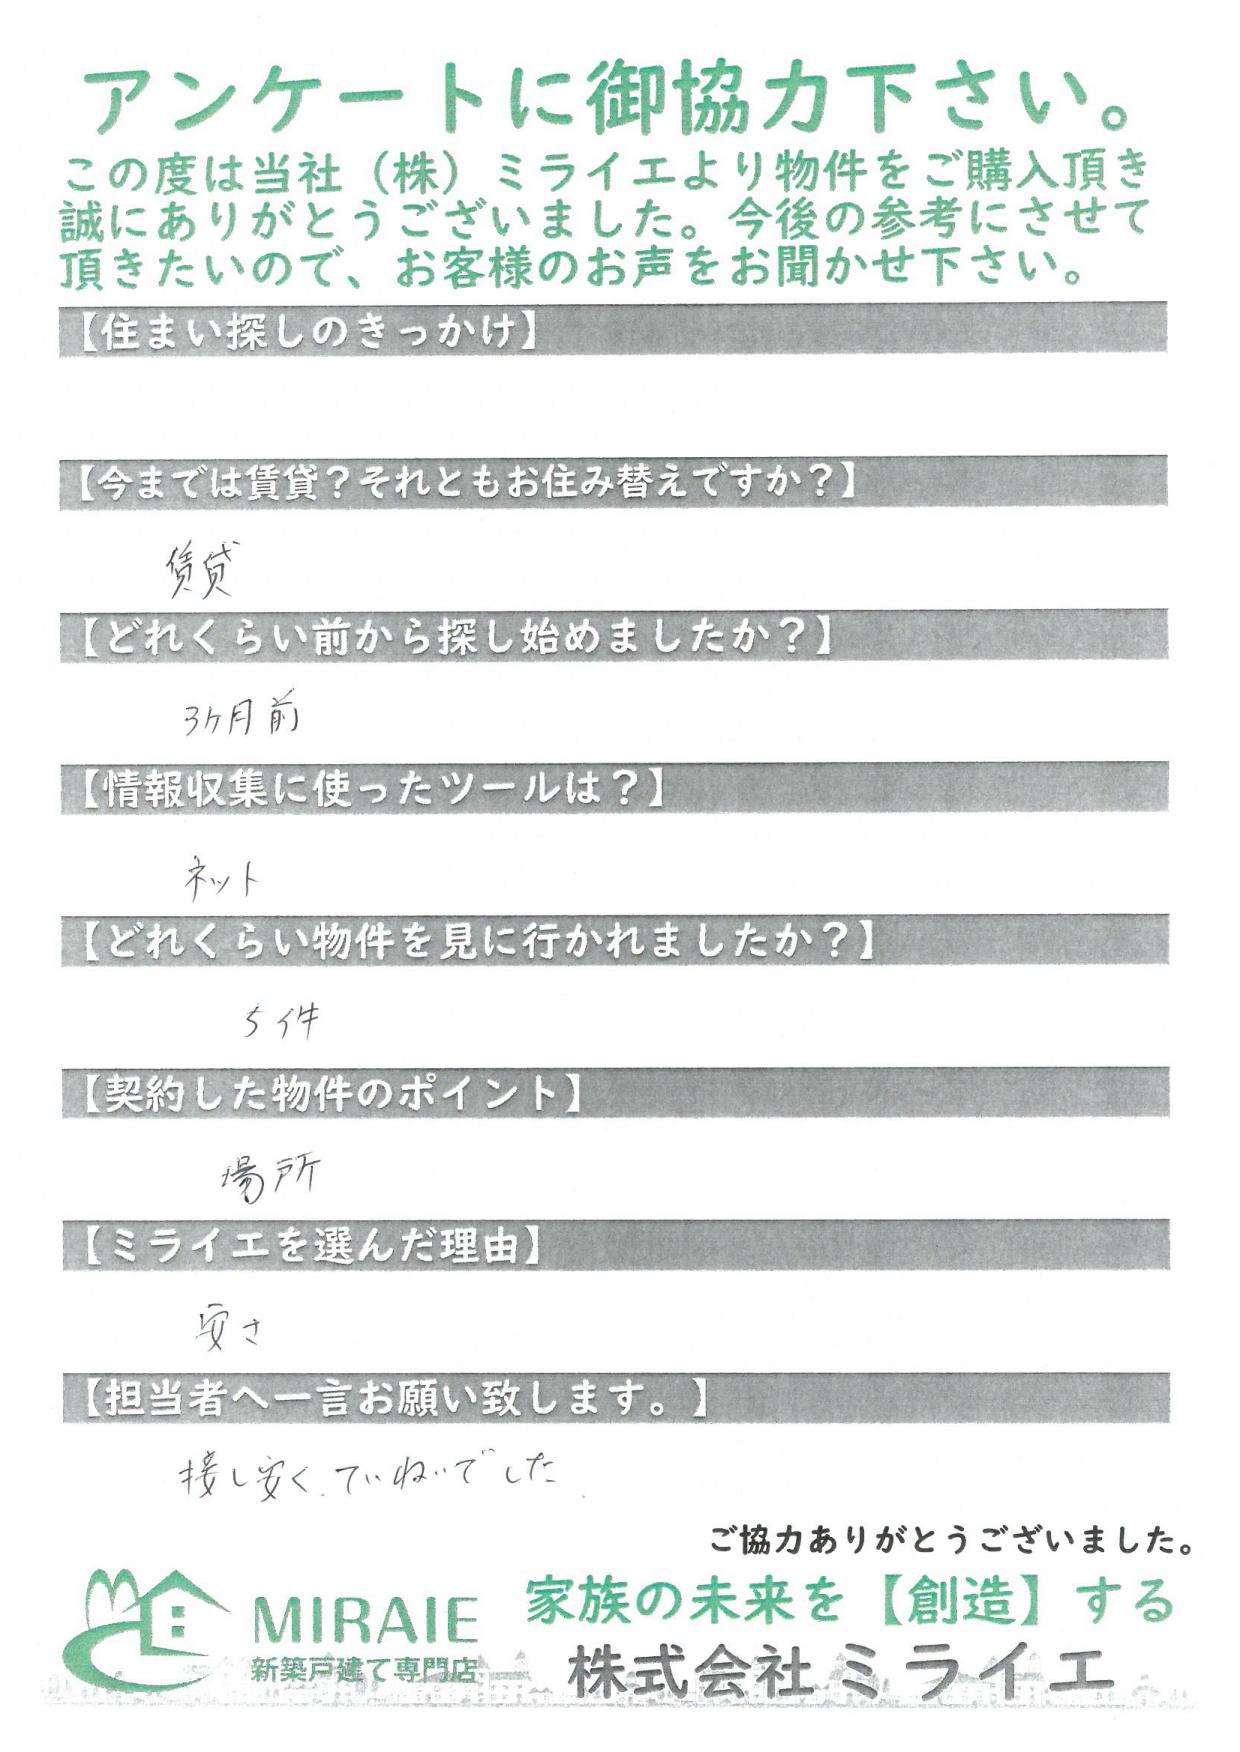 アンケートに御協力下さい。
この度は当社（株）ミライエより物件をご購入頂き
誠にありがとうございました。今後の参考にさせて
頂きたいので、お客様のお声をお聞かせ下さい。
【住まい探しのきっかけ】
【今までは賃貸？それともお住み替えですか？】
賃貸
【どれくらい前から探し始めましたか？】
3ヶ月前
【情報収集に使ったツールは？】
ネット
【どれくらい物件を見に行かれましたか？】
5件
【契約した物件のポイント】
場所
【ミライエを選んだ理由】
安さ
【担当者へ一言お願い致します。】
接し安く、ていねいでした
ご協力ありがとうございました。
MIRAIE
新築戸建て専門店
家族の未来を【創造】する
株式会社ミライエ